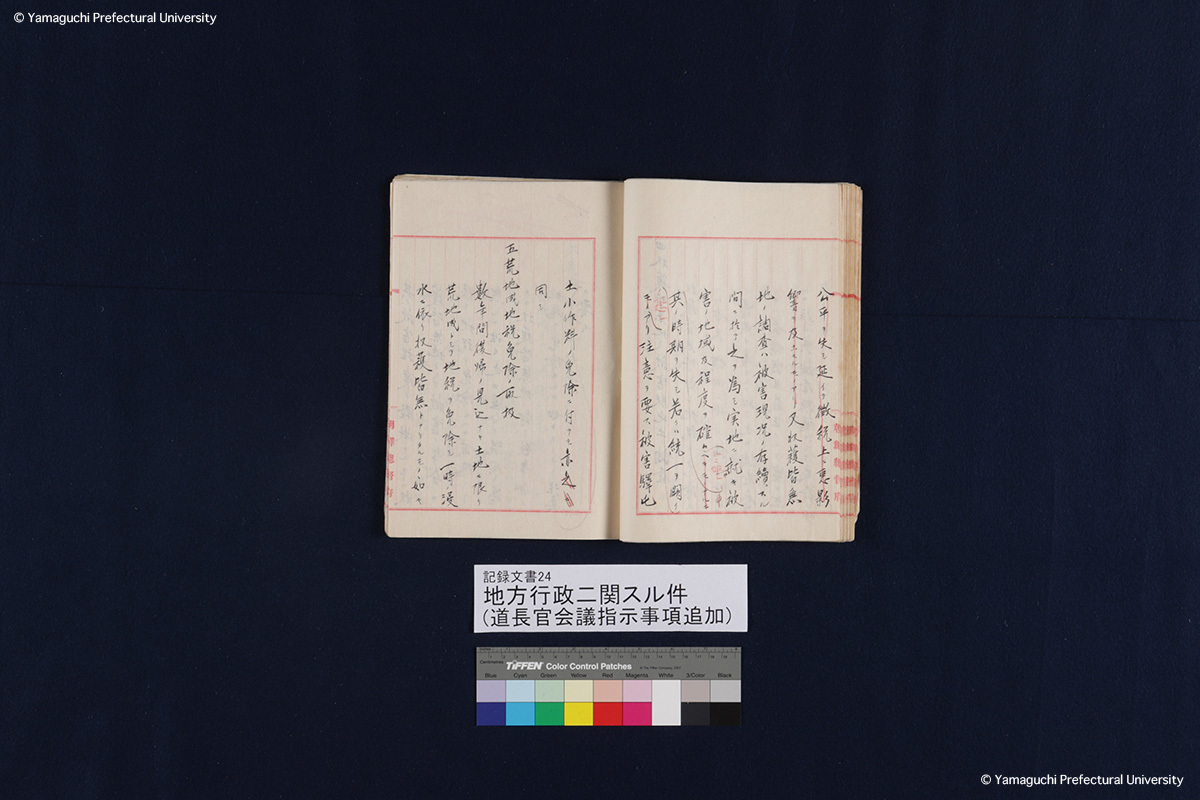 © Yamaguchi Prefectural University
公平ヲ失シ延イテ徴税上ニ悪影
響ヲ及ホス 又収穫皆無
地ノ調査ハ被害現況ノ存續スル
間ニ於テ之ヲ為シ実地ニ就キ被
害ノ地域及程度ヲ確
其ノ時期ヲ失シ若ハ統一ヲ
注意ヲ要ス被害驛屯
土小作料ノ免除ニ付テモ亦之
同シ
五荒地成地税免除ノ取扱
數年間復帰ノ見込ナキ土地ニ限リ
荒地成トシテ地税ヲ免除シ一時ノ浸
水ニ依リ収穫皆無トナリタルモノノ如キ
記録文書24
地方行政二関スル件
(道長官会議指示事項追加)
Centimetres
TIFFEN Color Control Patches
Blue Cyan Green Yellow Red Magenta White 3/Color Black
© Yamaguchi Prefectural University